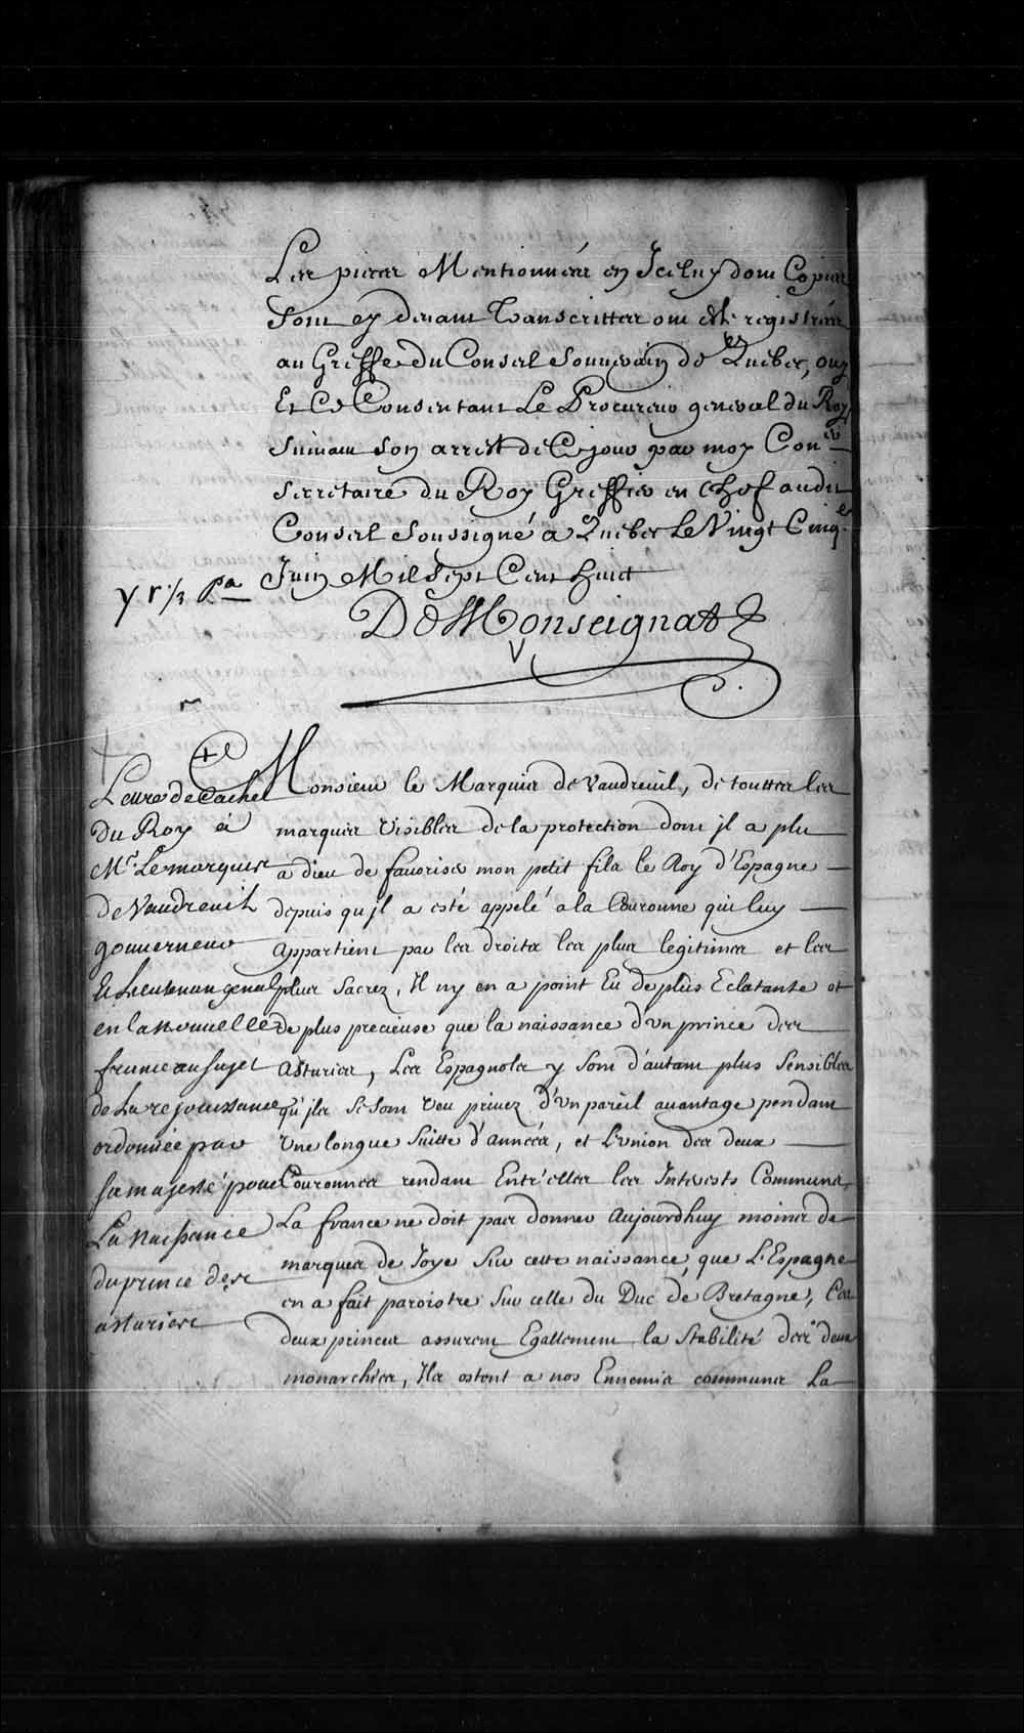 Les pieces Mentionnées en Iceluy dont Copies
sont cy devant Transcrittes ont esté registrées
au Greffe du Conseil Souverain de Quebec, ouy
Et Ce Consentant Le Procureur general du Roy
suivant son arrest de Ce jour par moy Con.er
secretaire du Roy Greffier en chef audit
Conseil soussigné a Quebec Le Vingt Cinq.e
Juin Mil Sept Cent huit
De Monseignat
Lettre de Cachet
du Roy a
Mr. Le marquis
de Vaudreuil
gouverneur
Et Lieutenan genal
en la nouvelle
france au sujet
de La rejouissance
ordonnée par
sa majesté pour
La naissance
du prince des
asturies
Monsieur le Marquis de Vaudreuil, de touttes les
marques Visibles de la protection dont jl a plu
a dieu de favoriser mon petit fils le Roy d'Espagne
depuis qu'jl a esté appelé a la Couronne qui luy
appartient par les droits les plus legitimes et les
plus Sacrez, Il ny en a point Eu de plus Eclatante et
de plus precieuse que la naissance d'vn prince des
Asturies, Les Espagnols y sont d'autant plus Sensibles
qu'jls se sont veu privez d'vn pareil avantage pendant
vne longue suitte d'années, et L'vnion des deux
Couronnes rendant Entr'elles les Interests Communs,
La france ne doit pas donner Aujourdhuy moins de
marques de Joye sur cette naissance, que L'Espagne
en a fait paroistre sur celle du Duc de Bretagne, Ces
deux princes assurent Egallement la Stabilité des deux
monarchies, Ils ostent a nos Ennemis communs La